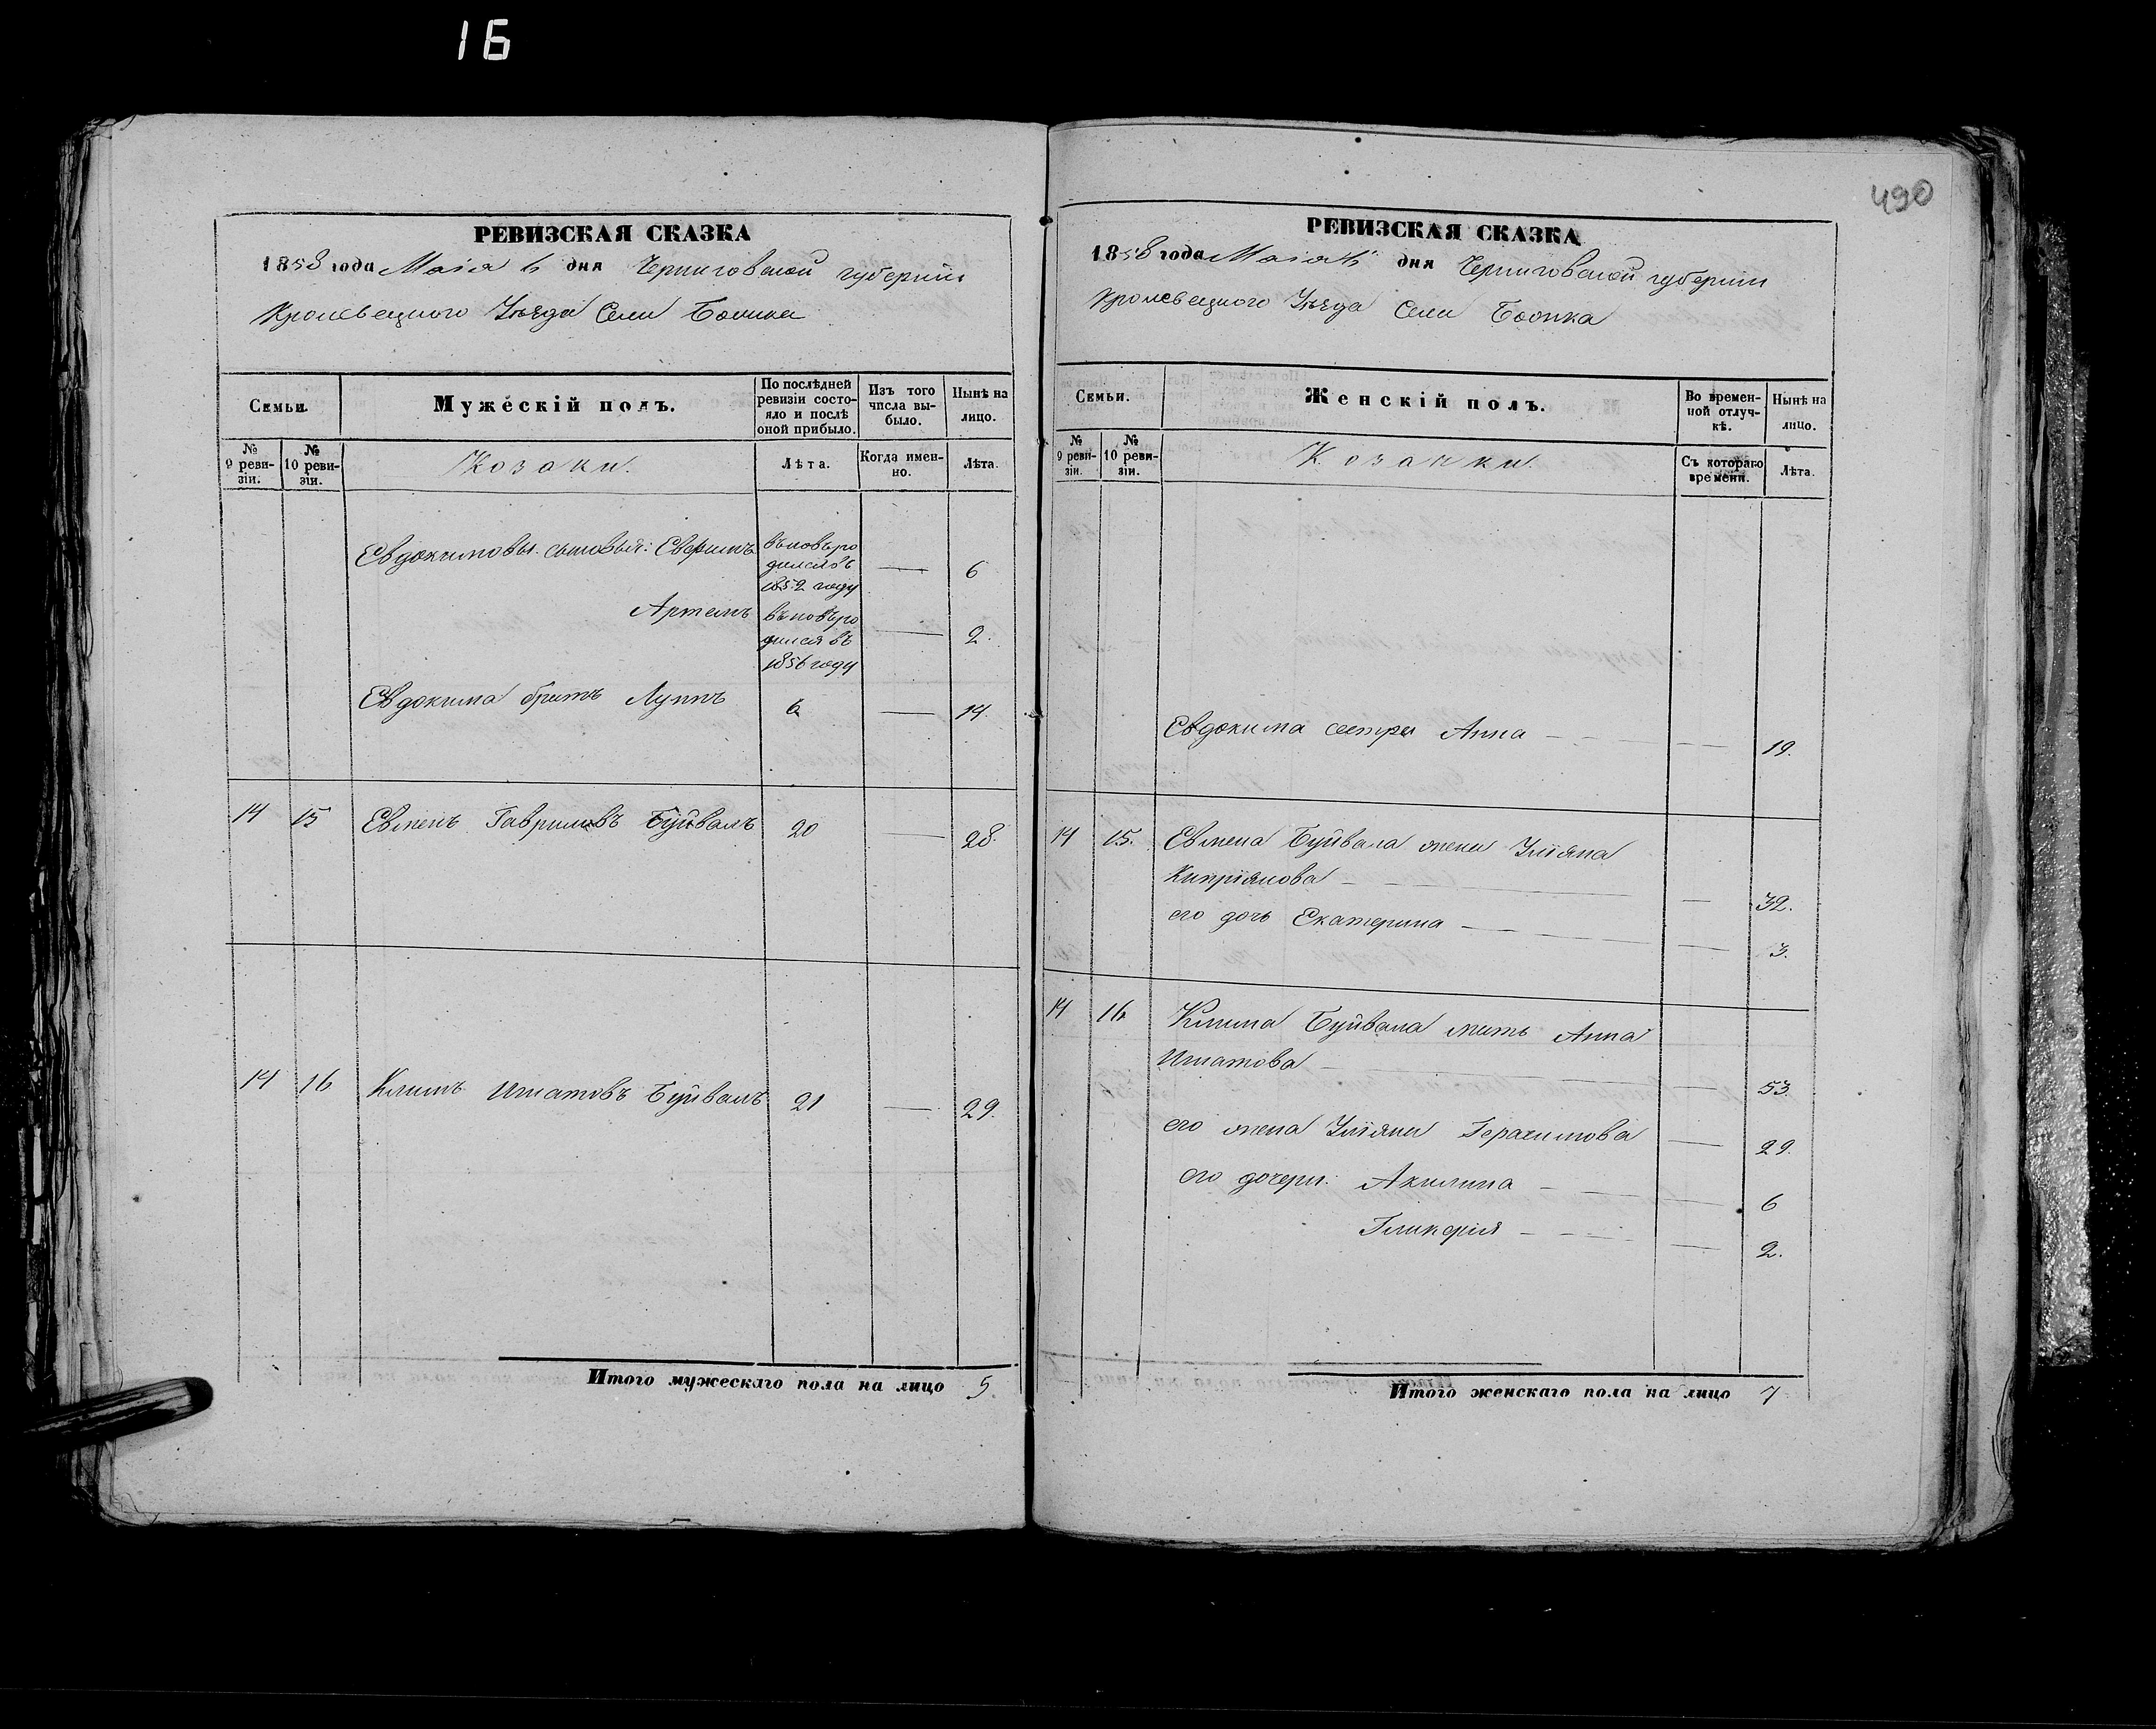 16
490
РЕВИЗСКАЯ СКАЗКА
1858 года Маія 6 дня Черниговской губерніи
Кролевецкого Уѣзда Села
Семьи.
Мужескій полъ.
По послѣдней ревизіи состояло и послѣ оной прибыло.
Изъ того числа выбыло.
Нынѣ на лицо.
№ 9 ревизіи.
№ 10 ревизіи.
Козаки.
Лѣта.
Когда именно.
Лѣта.
Евдокимовы сыновья: Евфимъ вновь родился въ 1852 году — 6
Артемъ вновь родился въ 1856 году — 2.
Евдокима братъ Луппъ 6 — 14.
14 15 Евменъ Гавриловъ Буйвалъ 20 — 28.
14 16 Климъ Игнатовъ Буйвалъ 21 — 29.
Итого мужескаго пола на лицо 5
РЕВИЗСКАЯ СКАЗКА
1858 года Маія 6 дня Черниговской губерніи
Кролевецкого Уѣзда Села
Семьи.
Женскій полъ.
Во временной отлучкѣ.
Нынѣ на лицо.
№ 9 ревизіи.
№ 10 ревизіи.
Козачки.
Съ котораго времени.
Лѣта.
Евдокима сестра Анна — — 19.
14 15. Евмена Буйвала жена Уліяна
Кипріянова — — 32.
его дочь Екатерина — — 3.
14 16 Клима Буйвала мать Анна
Игнатова — — 53.
его жена Уліяна Герасимова — 29.
его дочери: Акилина — — 6
Гликерія — — 2.
Итого женскаго пола на лицо 7